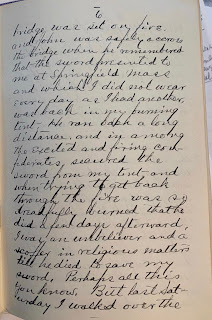 6
bridge was set on fire
and John was safely across
the bridge when he remembered
that the sword presented to
me at Springfield Mass
and which I did not wear
every day as I had another,
was back in my burning
tent. He ran back a long
distance, and in among
the excited and firing con-
federates, secured the
sword from my tent and
when trying to get back
through the fire was so
dreadfully burned that he
died a few days afterward,
I was an unbeliever and a
scoffer in religious matters
till he died to save my
sword, Perhaps all this
you know, But last Sat-
urday I walked over the